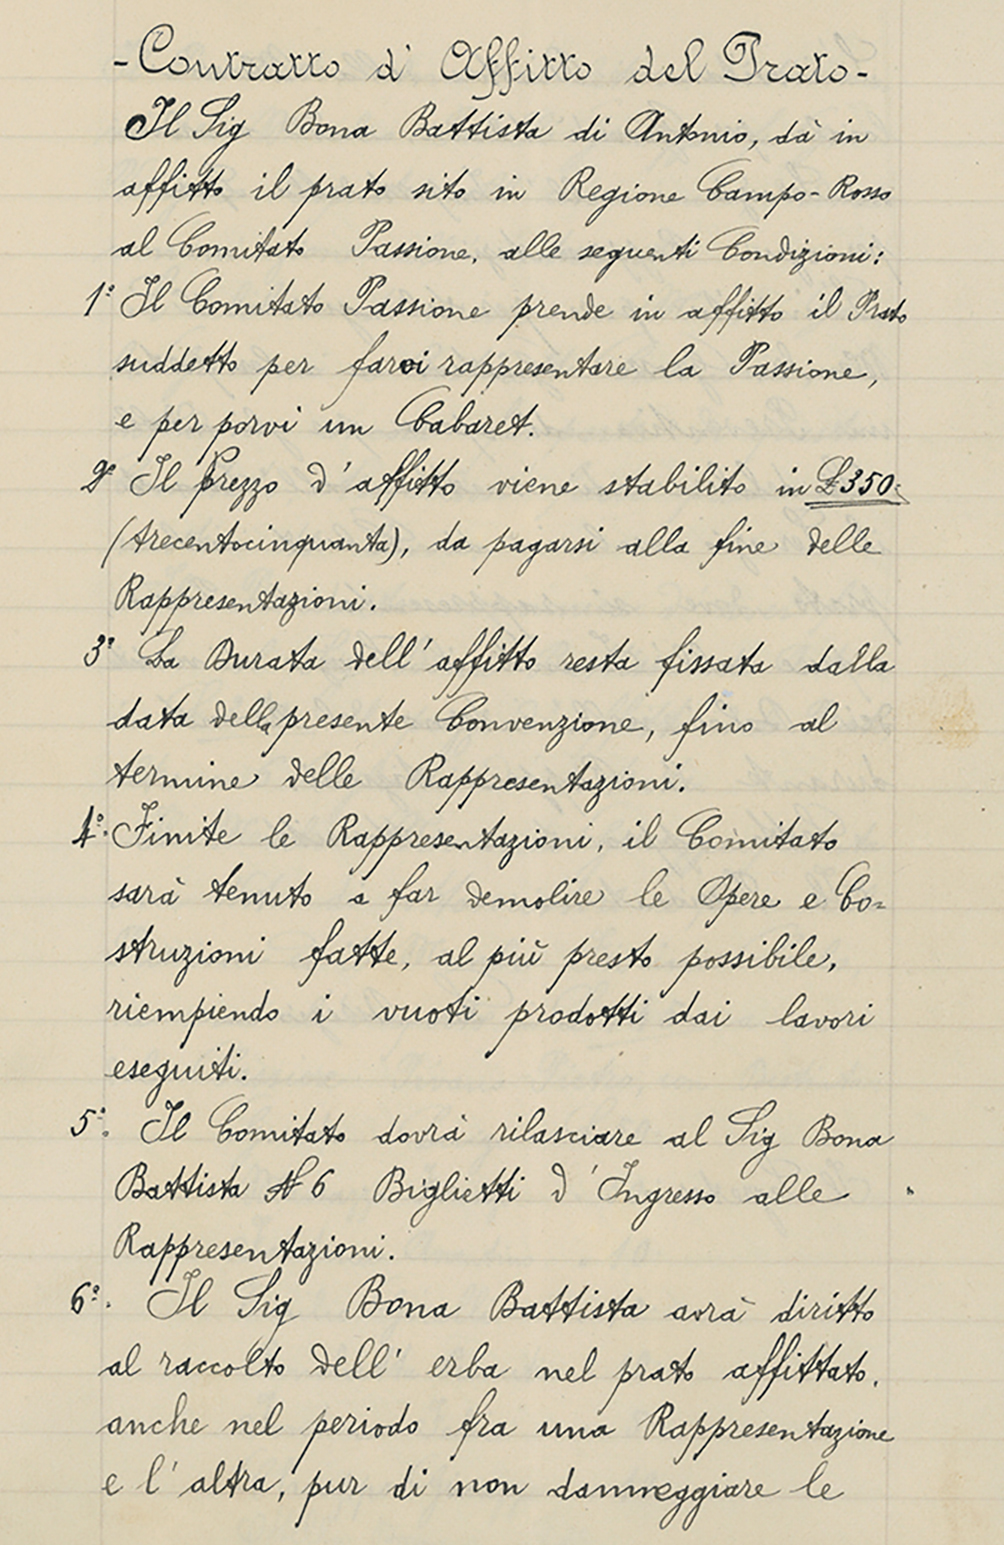 - Contratto d' Affitto del Prato -
Il Sig Bona Battista di Antonio, dà in
affitto il prato sito in Regione Campo-Rosso
al Comitato Passione, alle seguenti Condizioni:
1º Il Comitato Passione prende in affitto il Prato
suddetto per farvi rappresentare la Passione,
e per porvi un Cabaret.
2º Il Prezzo d'affitto viene stabilito in £350=
(trecentocinquanta), da pagarsi alla fine delle
Rappresentazioni.
3º La Durata dell'affitto resta fissata dalla
data della presente Convenzione, fino al
termine delle Rappresentazioni.
4º. Finite le Rappresentazioni, il Comitato
sarà tenuto a far demolire le Opere e Co=
struzioni fatte, al più presto possibile,
riempiendo i vuoti prodotti dai lavori
eseguiti.
5º. Il Comitato dovrà rilasciare al Sig Bona
Battista N 6 Biglietti d'Ingresso alle
Rappresentazioni.
6º. Il Sig Bona Battista avrà diritto
al raccolto dell'erba nel prato affittato,
anche nel periodo fra una Rappresentazione
e l'altra, pur di non danneggiare le